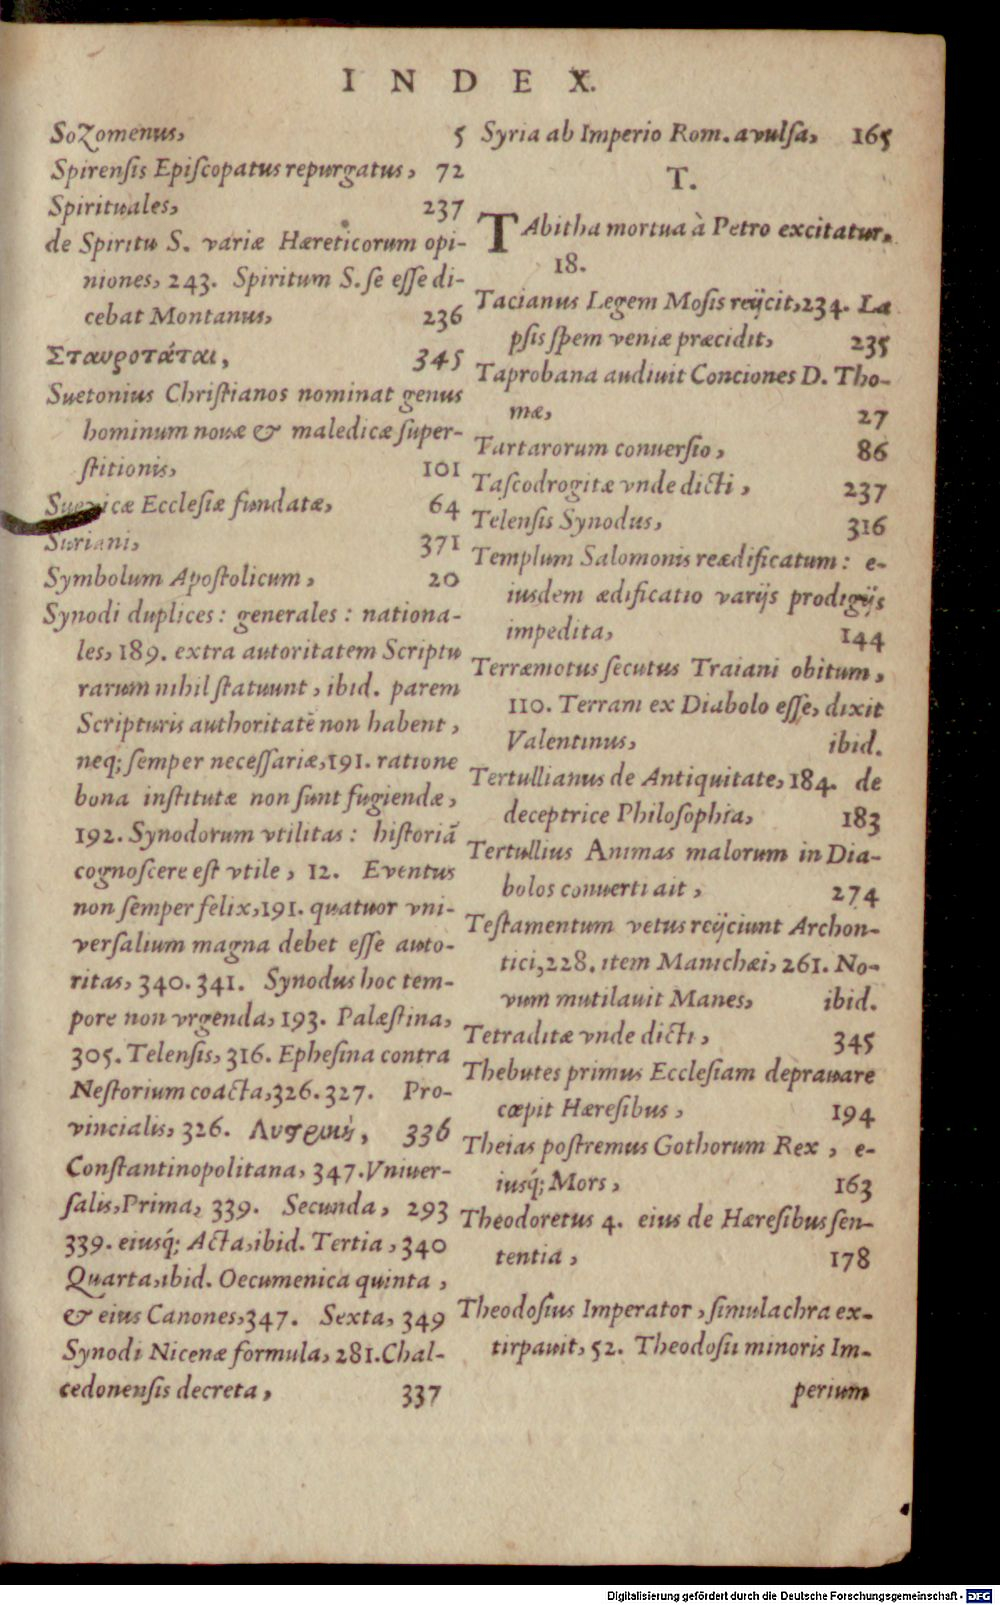 INDEX.
SoZomenus, 5
Spirensis Episcopatus repurgatus, 72
Spirituales, 237
de Spiritu S. variæ Hæreticorum opi-
niones, 243. Spiritum S. se esse di-
cebat Montanus, 236
Σταυροτάται, 345
Suetonius Christianos nominat genus
hominum nouæ & maledicæ super-
stitionis, 101
Sueuicæ Ecclesiæ fundatæ, 64
Suriani, 371
Symbolum Apostolicum, 20
Synodi duplices: generales: nationa-
les, 189. extra autoritatem Scriptu
rarum nihil statuunt, ibid. parem
Scripturis authoritatē non habent,
neq; semper necessariæ, 191. ratione
bona institutæ non sunt fugiendæ,
192. Synodorum vtilitas: historiā
cognoscere est vtile, 12. Euentus
non semper felix, 191. quatuor vni-
versalium magna debet esse auto-
ritas, 340. 341. Synodus hoc tem-
pore non vrgenda, 193. Palæstina,
305. Telensis, 316. Ephesina contra
Nestorium coacta, 326. 327. Pro-
vincialis, 326. 336
Constantinopolitana, 347. Vniuer-
salis, Prima, 339. Secunda, 293
339. eiusq́; Acta, ibid. Tertia, 340
Quarta, ibid. Oecumenica quinta,
& eius Canones, 347. Sexta, 349
Synodi Nicenæ formula, 281. Chal-
cedonensis decreta, 337
Syria ab Imperio Rom. avulsa, 165
T.
TAbitha mortua à Petro excitatur,
18.
Tacianus Legem Mosis reijcit, 234. La
psis spem veniæ præcidit, 235
Taprobana audiuit Conciones D. Tho-
mæ, 27
Tartarorum conuersio, 86
Tascodrogitæ vnde dicti, 237
Telensis Synodus, 316
Templum Salomonis reædificatum: e-
iusdem ædificatio varijs prodigijs
impedita, 144
Terræmotus secutus Traiani obitum,
110. Terram ex Diabolo esse, dixit
Valentinus, ibid.
Tertullianus de Antiquitate, 184. de
deceptrice Philosophia, 183
Tertullius Animas malorum in Dia-
bolos conuerti ait, 274
Testamentum vetus reijciunt Archon-
tici, 228. item Manichæi, 261. No-
vum mutilauit Manes, ibid.
Tetraditæ vnde dicti, 345
Thebutes primus Ecclesiam deprauare
cœpit Hæresibus, 194
Theias postremus Gothorum Rex, e-
iusq́; Mors, 163
Theodoretus 4. eius de Hæresibus sen-
tentia, 178
Theodosius Imperator, simulachra ex-
tirpauit, 52. Theodosii minoris Im-
perium
Digitalisierung gefördert durch die Deutsche Forschungsgemeinschaft - DFG